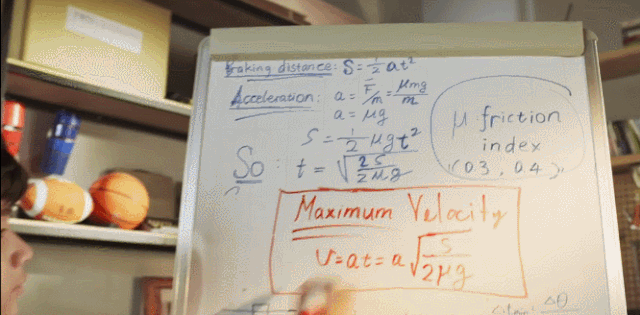 Braking distance: S = ½ at²
Acceleration: a = F/m = μmg/m
a = μg
S = ½ μgt²
So: t = √(2S/2μg)
μ friction
index
(0.3, 0.4)
Maximum Velocity
V = at = a √(S/2μg)
Δθ